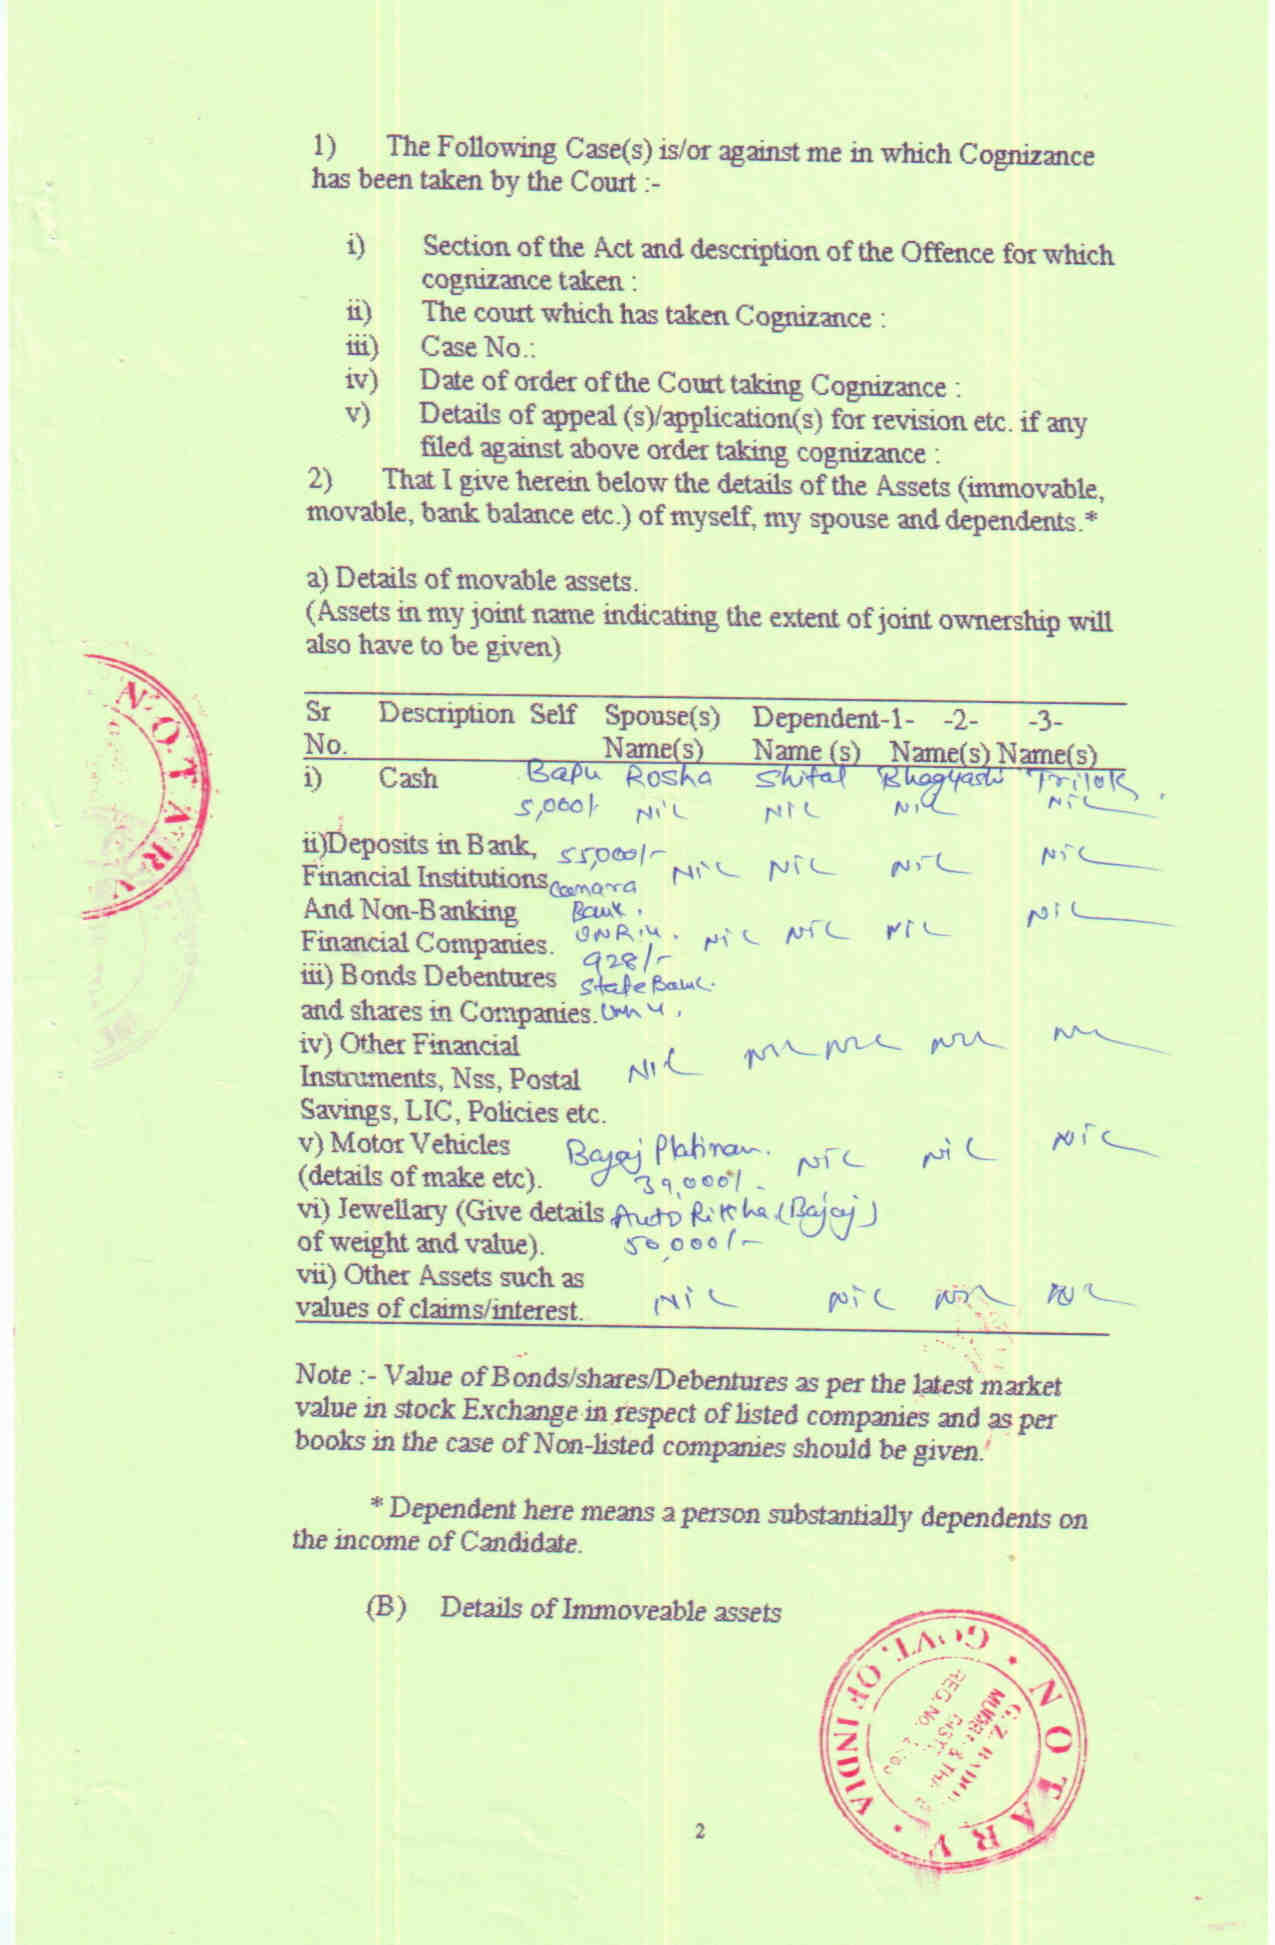 1) The Following Case(s) is/or against me in which Cognizance
has been taken by the Court :-
i) Section of the Act and description of the Offence for which
cognizance taken :
ii) The court which has taken Cognizance :
iii) Case No.:
iv) Date of order of the Court taking Cognizance :
v) Details of appeal (s)/application(s) for revision etc. if any
filed against above order taking cognizance :
2) That I give herein below the details of the Assets (immovable,
movable, bank balance etc.) of myself, my spouse and dependents.*
a) Details of movable assets.
(Assets in my joint name indicating the extent of joint ownership will
also have to be given)
Sr Description Self Spouse(s) Dependent-1- -2- -3-
No. Name(s) Name (s) Name(s) Name(s)
i) Cash Bapu Rosha Shital Bhagyashi Trilok
5,000/- NiL NiL NiL NiL
ii)Deposits in Bank, 55,000/- NiL NiL NiL NiL
Financial Institutions
And Non-Banking Bank. NiL
Financial Companies. NiL NiL NiL
928/-
iii) Bonds Debentures State Bank.
and shares in Companies.
iv) Other Financial NiL NiL NiL NiL NiL
Instruments, Nss, Postal
Savings, LIC, Policies etc.
v) Motor Vehicles Bajaj Platinam. NiL NiL NiL
(details of make etc). 39,000/-
vi) Jewellary (Give details Auto Rikha (Bajaj)
of weight and value). 50,000/-
vii) Other Assets such as
values of claims/interest. NiL NiL NiL NiL
Note :- Value of Bonds/shares/Debentures as per the latest market
value in stock Exchange in respect of listed companies and as per
books in the case of Non-listed companies should be given.
* Dependent here means a person substantially dependents on
the income of Candidate.
(B) Details of Immoveable assets
NOTARY
NOTARY
GOVT. OF INDIA
REG. NO.
2